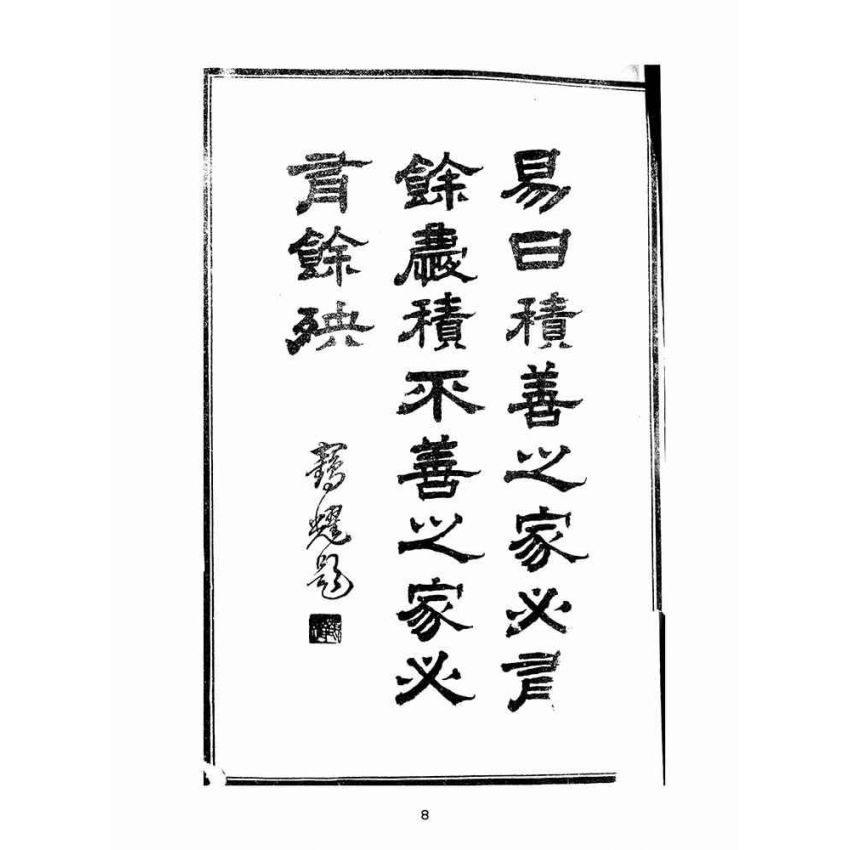 易曰積善之家必有
餘慶積不善之家必
有餘殃
耀題
8